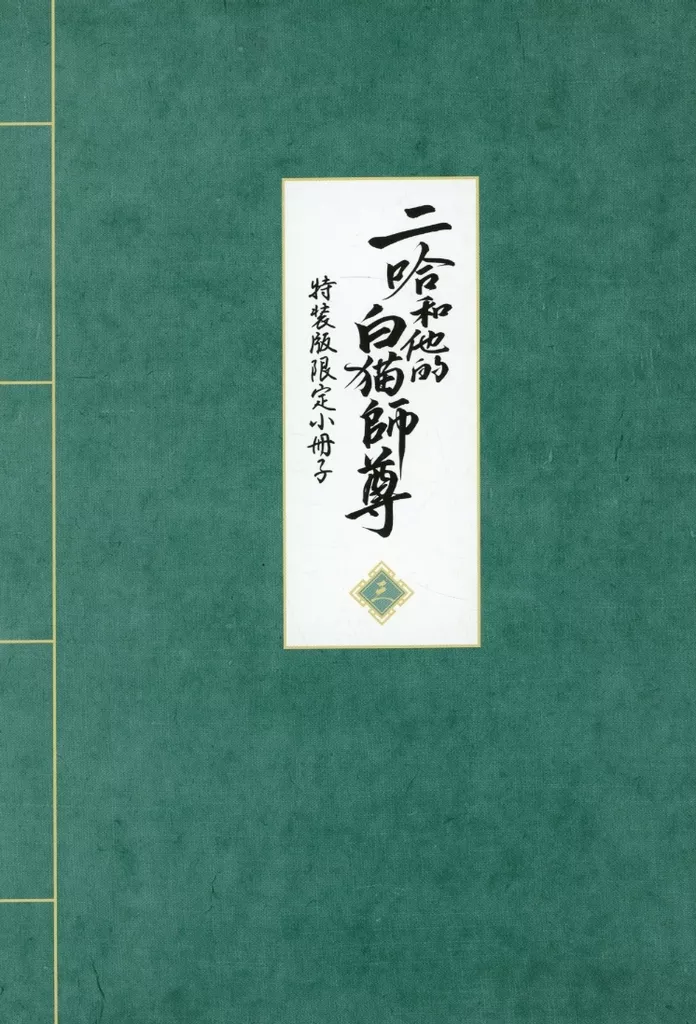 二哈和他的白猫師尊
特装版限定小冊子
三